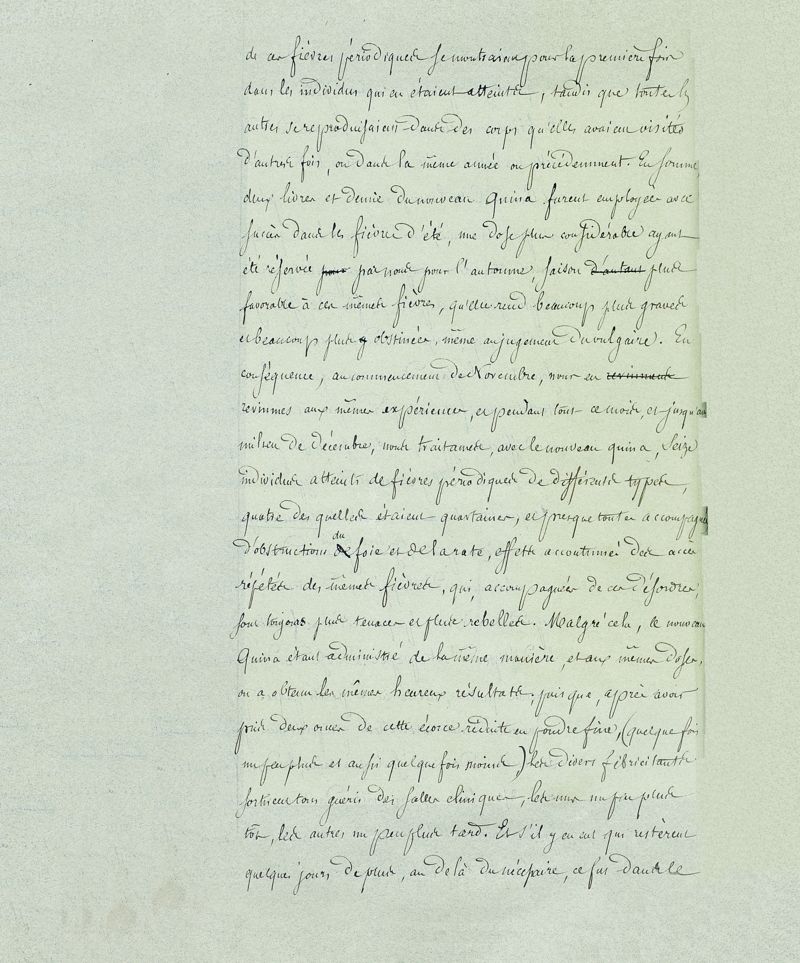 de ces fièvres périodiques se montraient pour la première fois
dans les individus qui en étaient atteints, tandis que toutes les
autres se reproduisaient dans des corps qu'elles avaient visités
d'autres fois, ou dans la même année ou précédemment. En somme,
deux livres et demie du nouveau Quina furent employées avec
succès dans les fièvres d'été, une dose plus considérable ayant
été réservée pour par nous pour l'automne, saison d'autant plus
favorable à ces mêmes fièvres, qu'elle rend beaucoup plus graves
et beaucoup plus obstinées, même au jugement du vulgaire. En
conséquence, au commencement de Novembre, nous en revinmes
revinmes aux mêmes expériences, et pendant tout ce mois, et jusqu'au
milieu de décembre, nous traitames, avec le nouveau quina, Seize
individus atteints de fièvres périodiques de différents types,
quatre des quelles étaient quartaines, et presque toutes accompagnées
d'obstructions du foie et de la rate, effets accoutumés des accès
répétés des mêmes fièvres, qui, accompagnées de ces désordres,
sont toujours plus tenaces et plus rebelles. Malgré cela, le nouveau
Quina étant administré de la même manière, et aux mêmes doses,
on a obtenu les mêmes heureux résultats; puisque, après avoir
pris deux onces de cette écorce réduite en poudre fine, (quelque fois
un peu plus et aussi quelque fois moins) les divers fibricitants
sortirent tous guéris des salles cliniques, les uns un peu plus
tôt, les autres un peu plus tard. Et s'il y en eut qui restèrent
quelques jours de plus, au delà du nécessaire, ce fut dans le